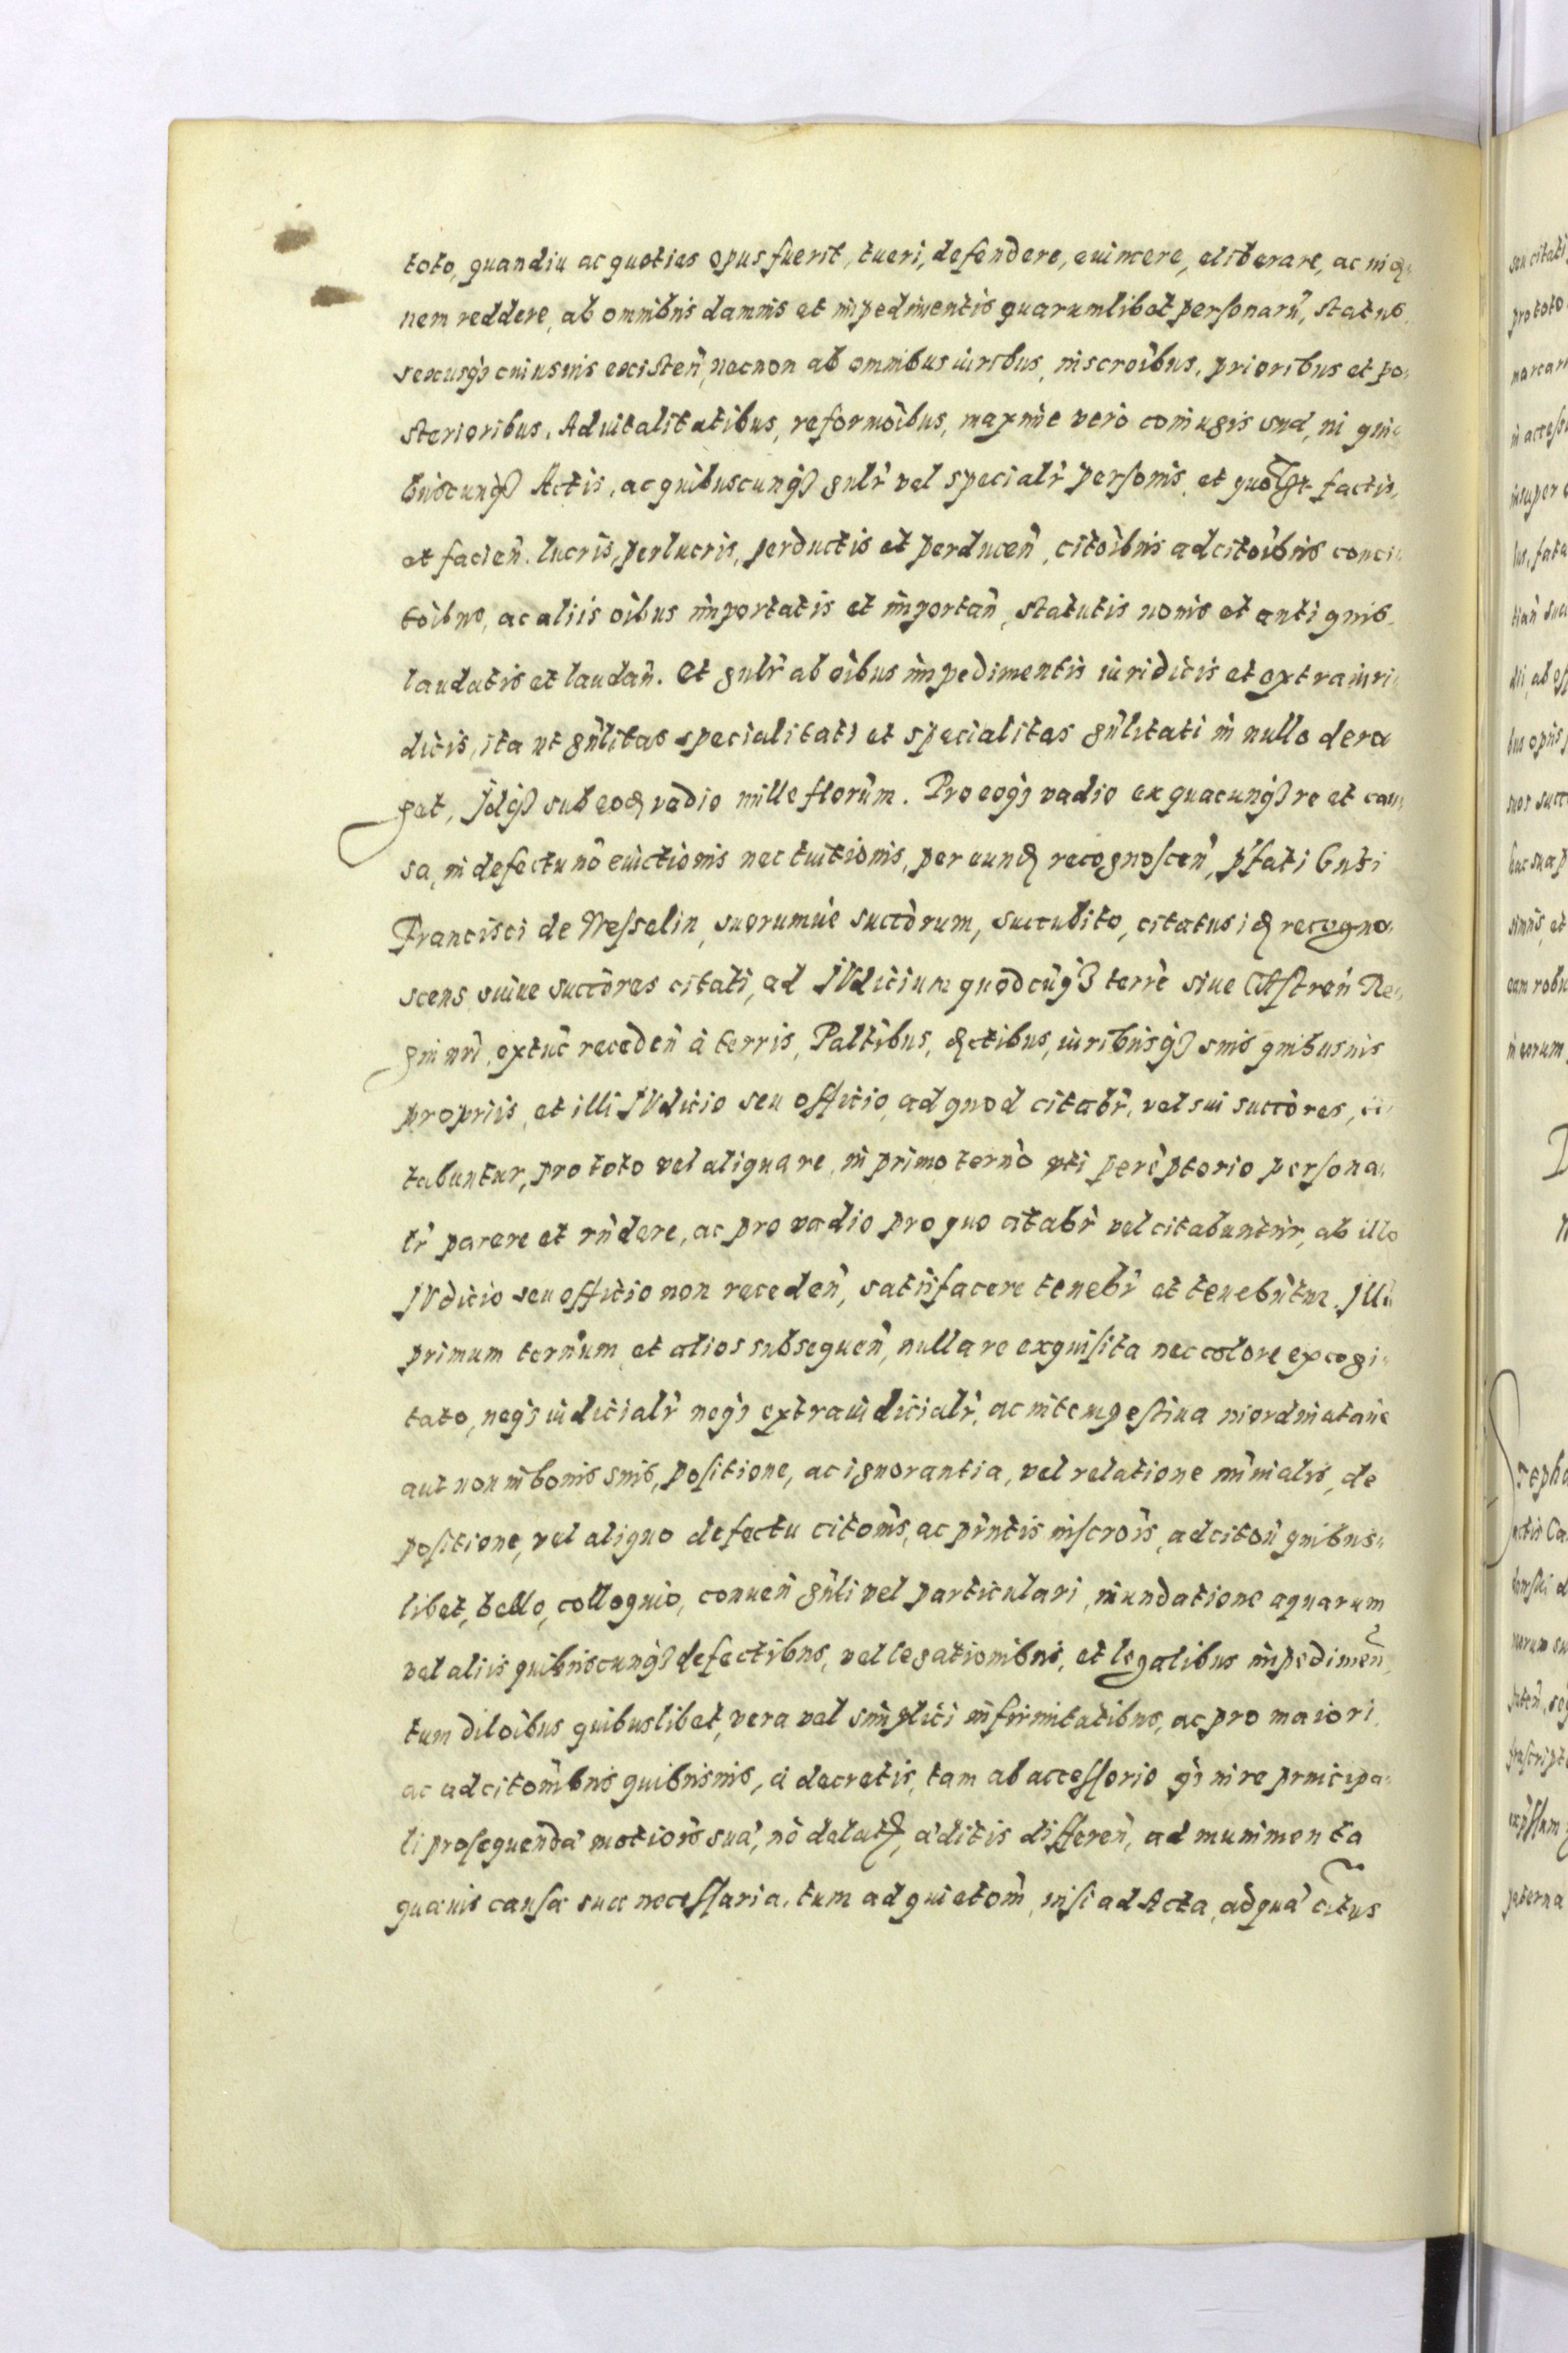 toto, quandiu ac quoties opus fuerit, tueri, defendere, euincere, eliberare, ac
nem reddere, ab omnibus damnis et impedimentis quarumlibet personarũ, status,
sexusq̃ cuiusuis existeñ, necnon ab omnibus iuribus, inscroĩbus, prioribus et po-
sterioribus, Aduitalitatibus, reformoĩbus, maxime vero coniugis suæ, in qui-
buscunq̃ Actis, ac quibuscunq̃ gnlr̃ vel specialr̃ personis, et factis,
et facieñ. lucris, perlucris, perductis et perduceñ, citoĩbus adcitoĩbus conci-
toĩbus, ac aliis oĩbus importatis et importañ, statutis nouis et antiquis.
laudatis et laudañ. Et gnlr̃ ab oĩbus impedimentis iuridicis et extraiuri-
dicis, ita ut gñlitas specialitati et specialitas gñlitati in nullo dero
get, Idq̃ sub eođ vadio mille florũm. Pro eoq̃ vadio ex quacunq̃ re et cau-
sa, in defectu nõ euictionis nec tuitionis, per eunđ recognosceñ, pfati Gnsi
Francisci de Wesselin, suorumue succõrum, succubito, citatus iđ recogno-
scens suiue succõres citati, ad IVdicium quodcũq̃ terrẽ siue Cästreñ Re-
gni nrĩ, extũc recedeñ à terris, Paltĩbus, đctibus, iuribusq̃ suis quibusuis
propriis, et illi IVdicio seu officio, ad quod citabr̃, vel sui succõres, ci-
tabuntur, pro toto vel aliqua re, in primo termõ uti perẽptorio persona-
lr̃ parere et rñdere, ac pro vadio pro quo citabr̃ vel citabuntur, ab illo
IVdicio seu officio non recedeñ, satisfacere tenebr̃ et tenebũtur. Illũ
primum termũm et alios subsequeñ, nulla re exquisita nec colore excogi-
tato, neq̃ iudicialr̃ neq̃ extraiudicialr̃, ac intempestiua inordinataue
aut non in bonis suis, positione, ac ignorantia, vel relatione minialis, de
positione, vel aliquo defectu citoñis, ac pñtis inscroĩs, adcitoñ quibus-
libet, bello, colloquio, conueñ gñli vel particulari, inundatione aquarum
vel aliis quibuscunq̃ defectibus, vel legationibus, et legalibus impedimeñ,
tum diloĩbus quibuslibet, vera vel simplici infirmitatibus, ac pro maiori,
ac adcitoñibus quibusuis, à decretis, tam ab accessorio q̃ in re principa-
li prosequendã motioĩs suã, nõ à ditis differeñ, ad munimenta
quæuis causæ suæ necessaria. tum ad quietoñ, nisi ad Acta, ad quã citus